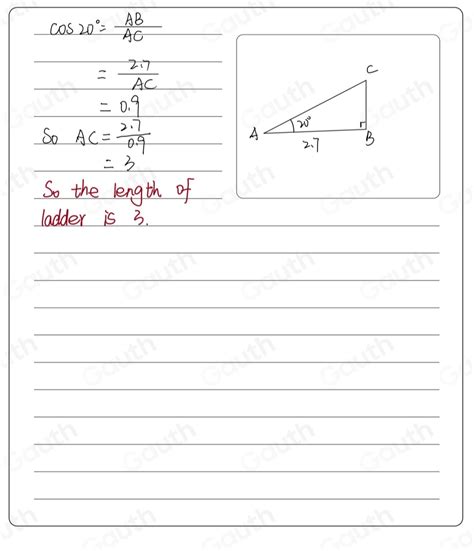 cos 20° = AB/AC
= 2.7/AC
= 0.9
So AC = 2.7/0.9
= 3
So the length of
ladder is 3.
C
A 20° B
2.7
Gauth